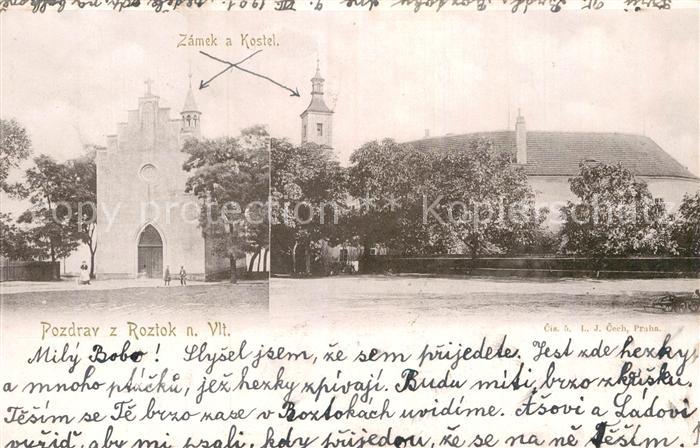 Zámek a Kostel.
copy protection ** Kopierschutz
Pozdrav z Roztok n. Vlt.
Čís. 5. L. J. Čech, Praha.
Milý Bobo! Slyšel jsem, že sem přijedete. Jest zde hezky
a mnoho ptáčků, jež hezky zpívají. Budu míti brzo zkřušku.
Těším se Tě brzo zase v Roztokách uvidíme. Ašovi a Láďovi
vyřiď, aby mi psali, kdy přijedou, že se na ně těším.